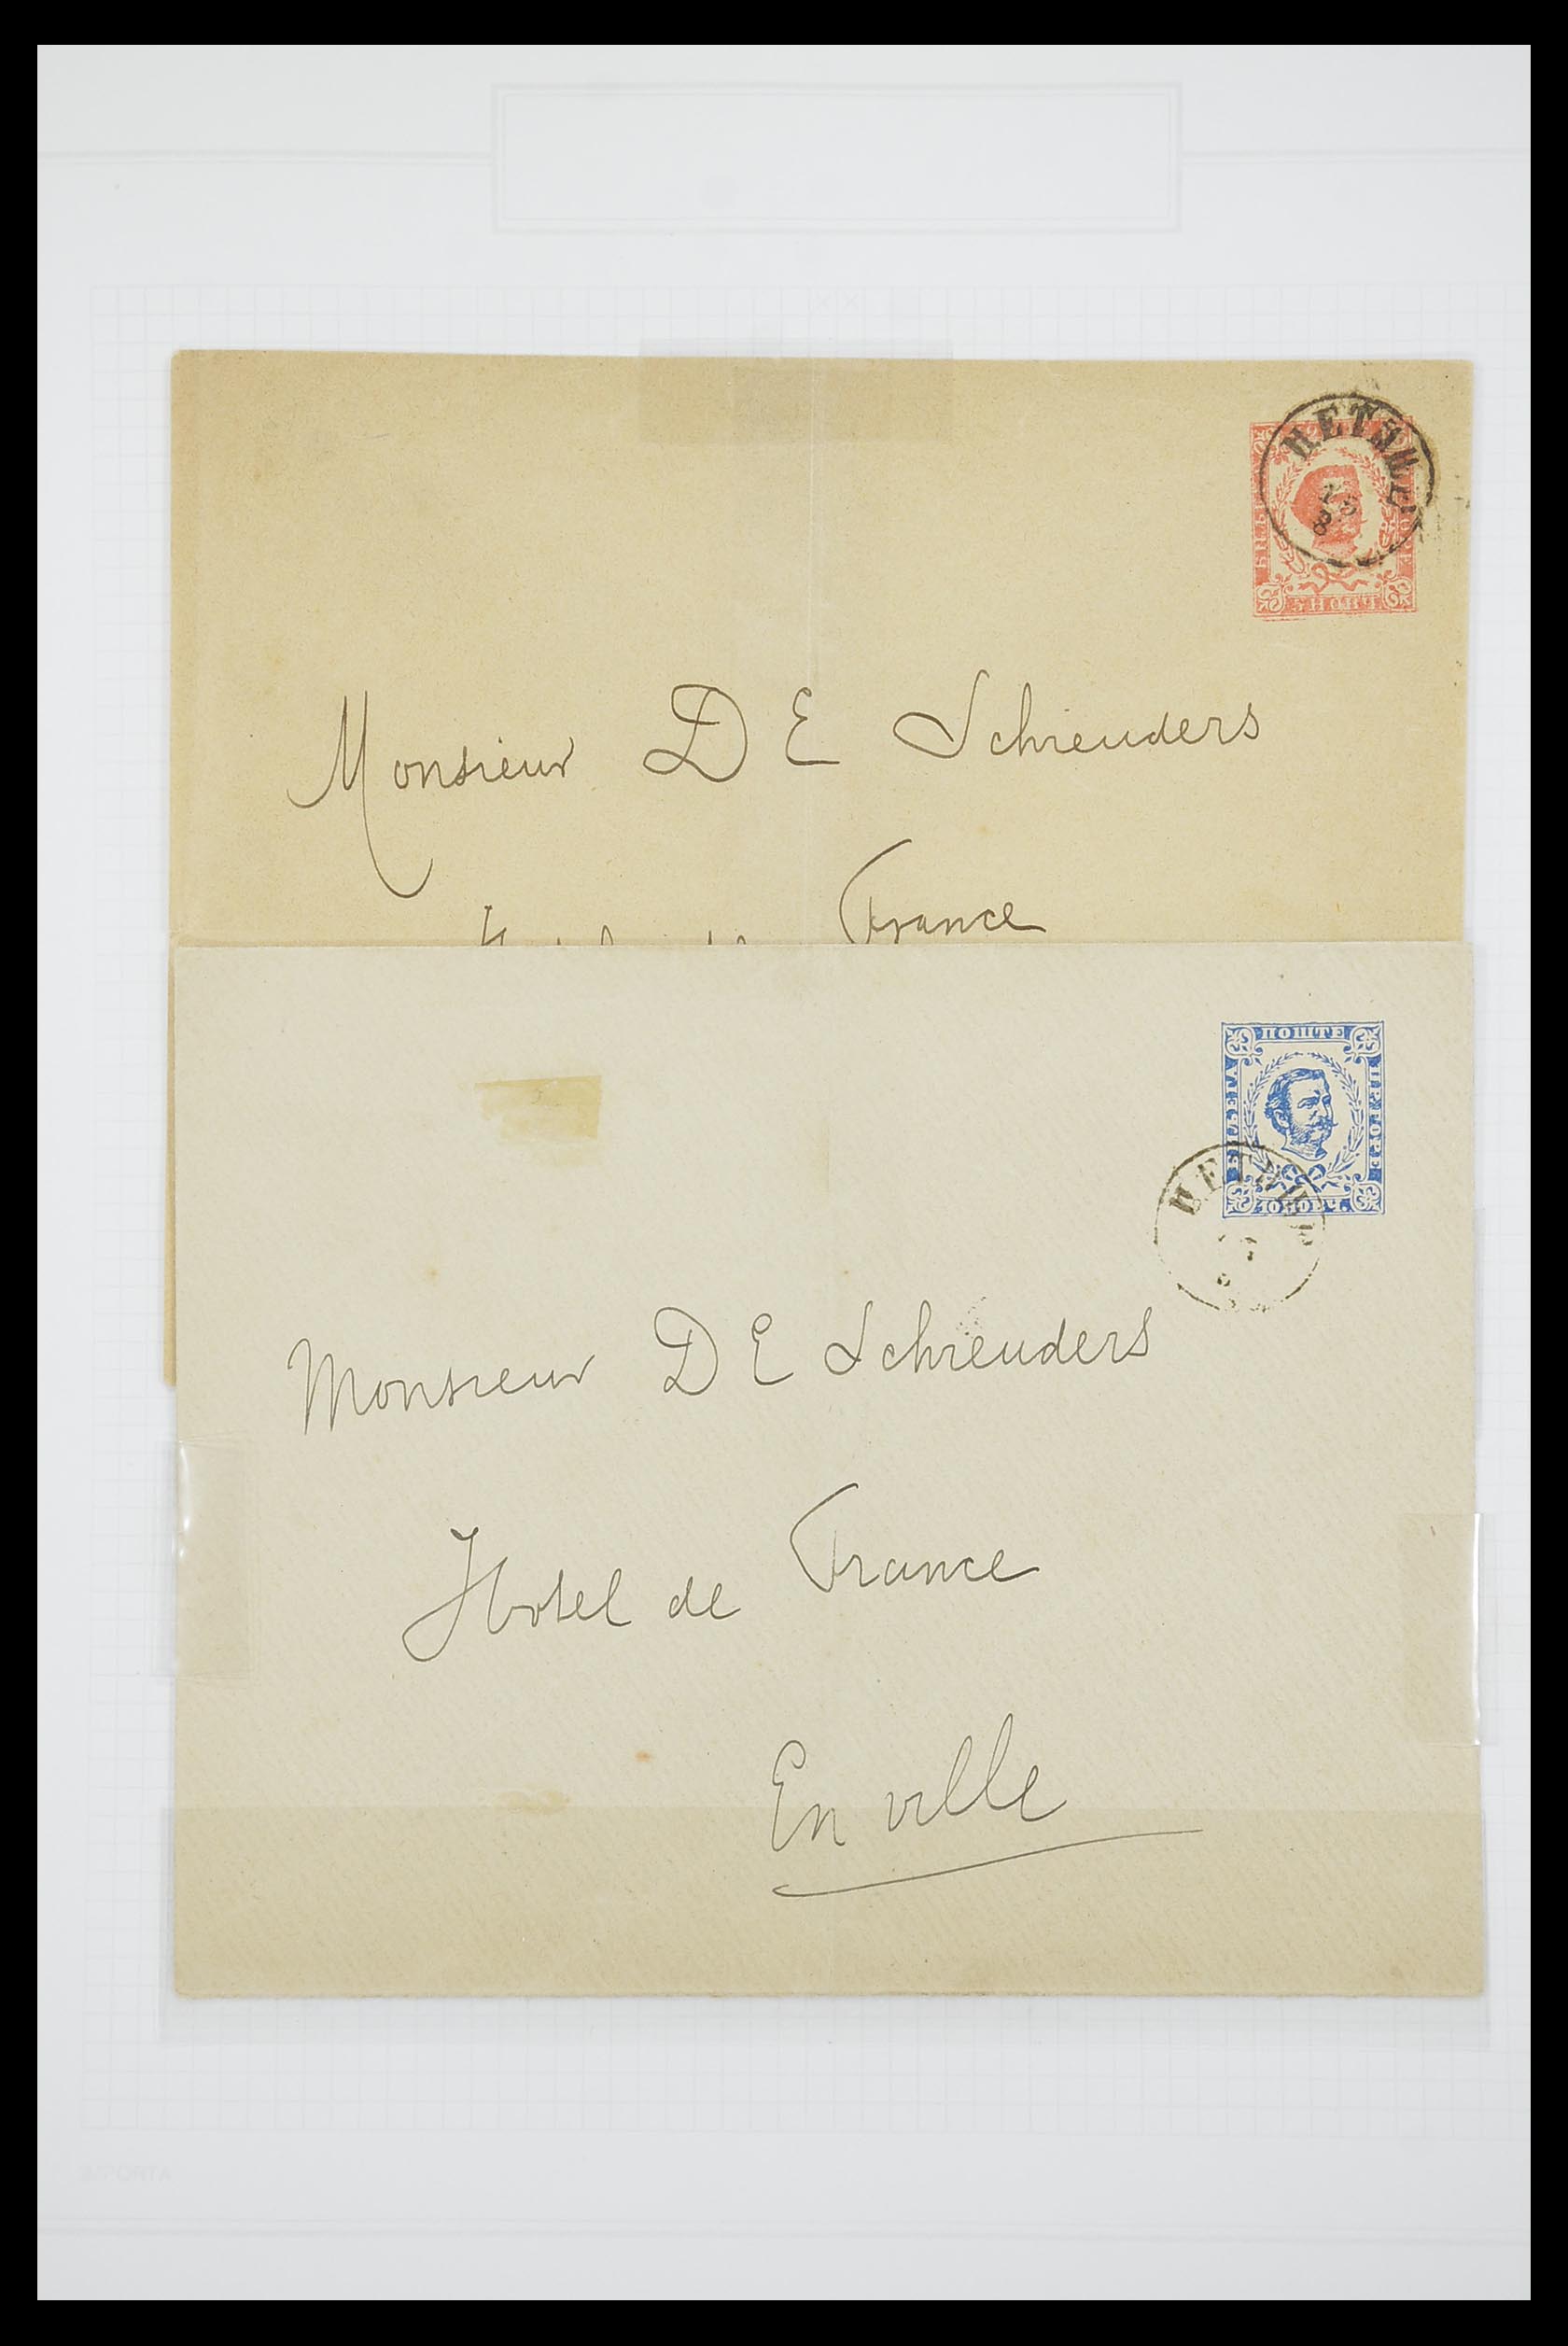 ЦЕТИЊЕ
5 НОВЧ.
Monsieur D E Schreuders
France
ПОШТЕ
ЦР. ГОРЕ
10 НОВЧ.
Monsieur D E Schreuders
Hotel de France
En ville